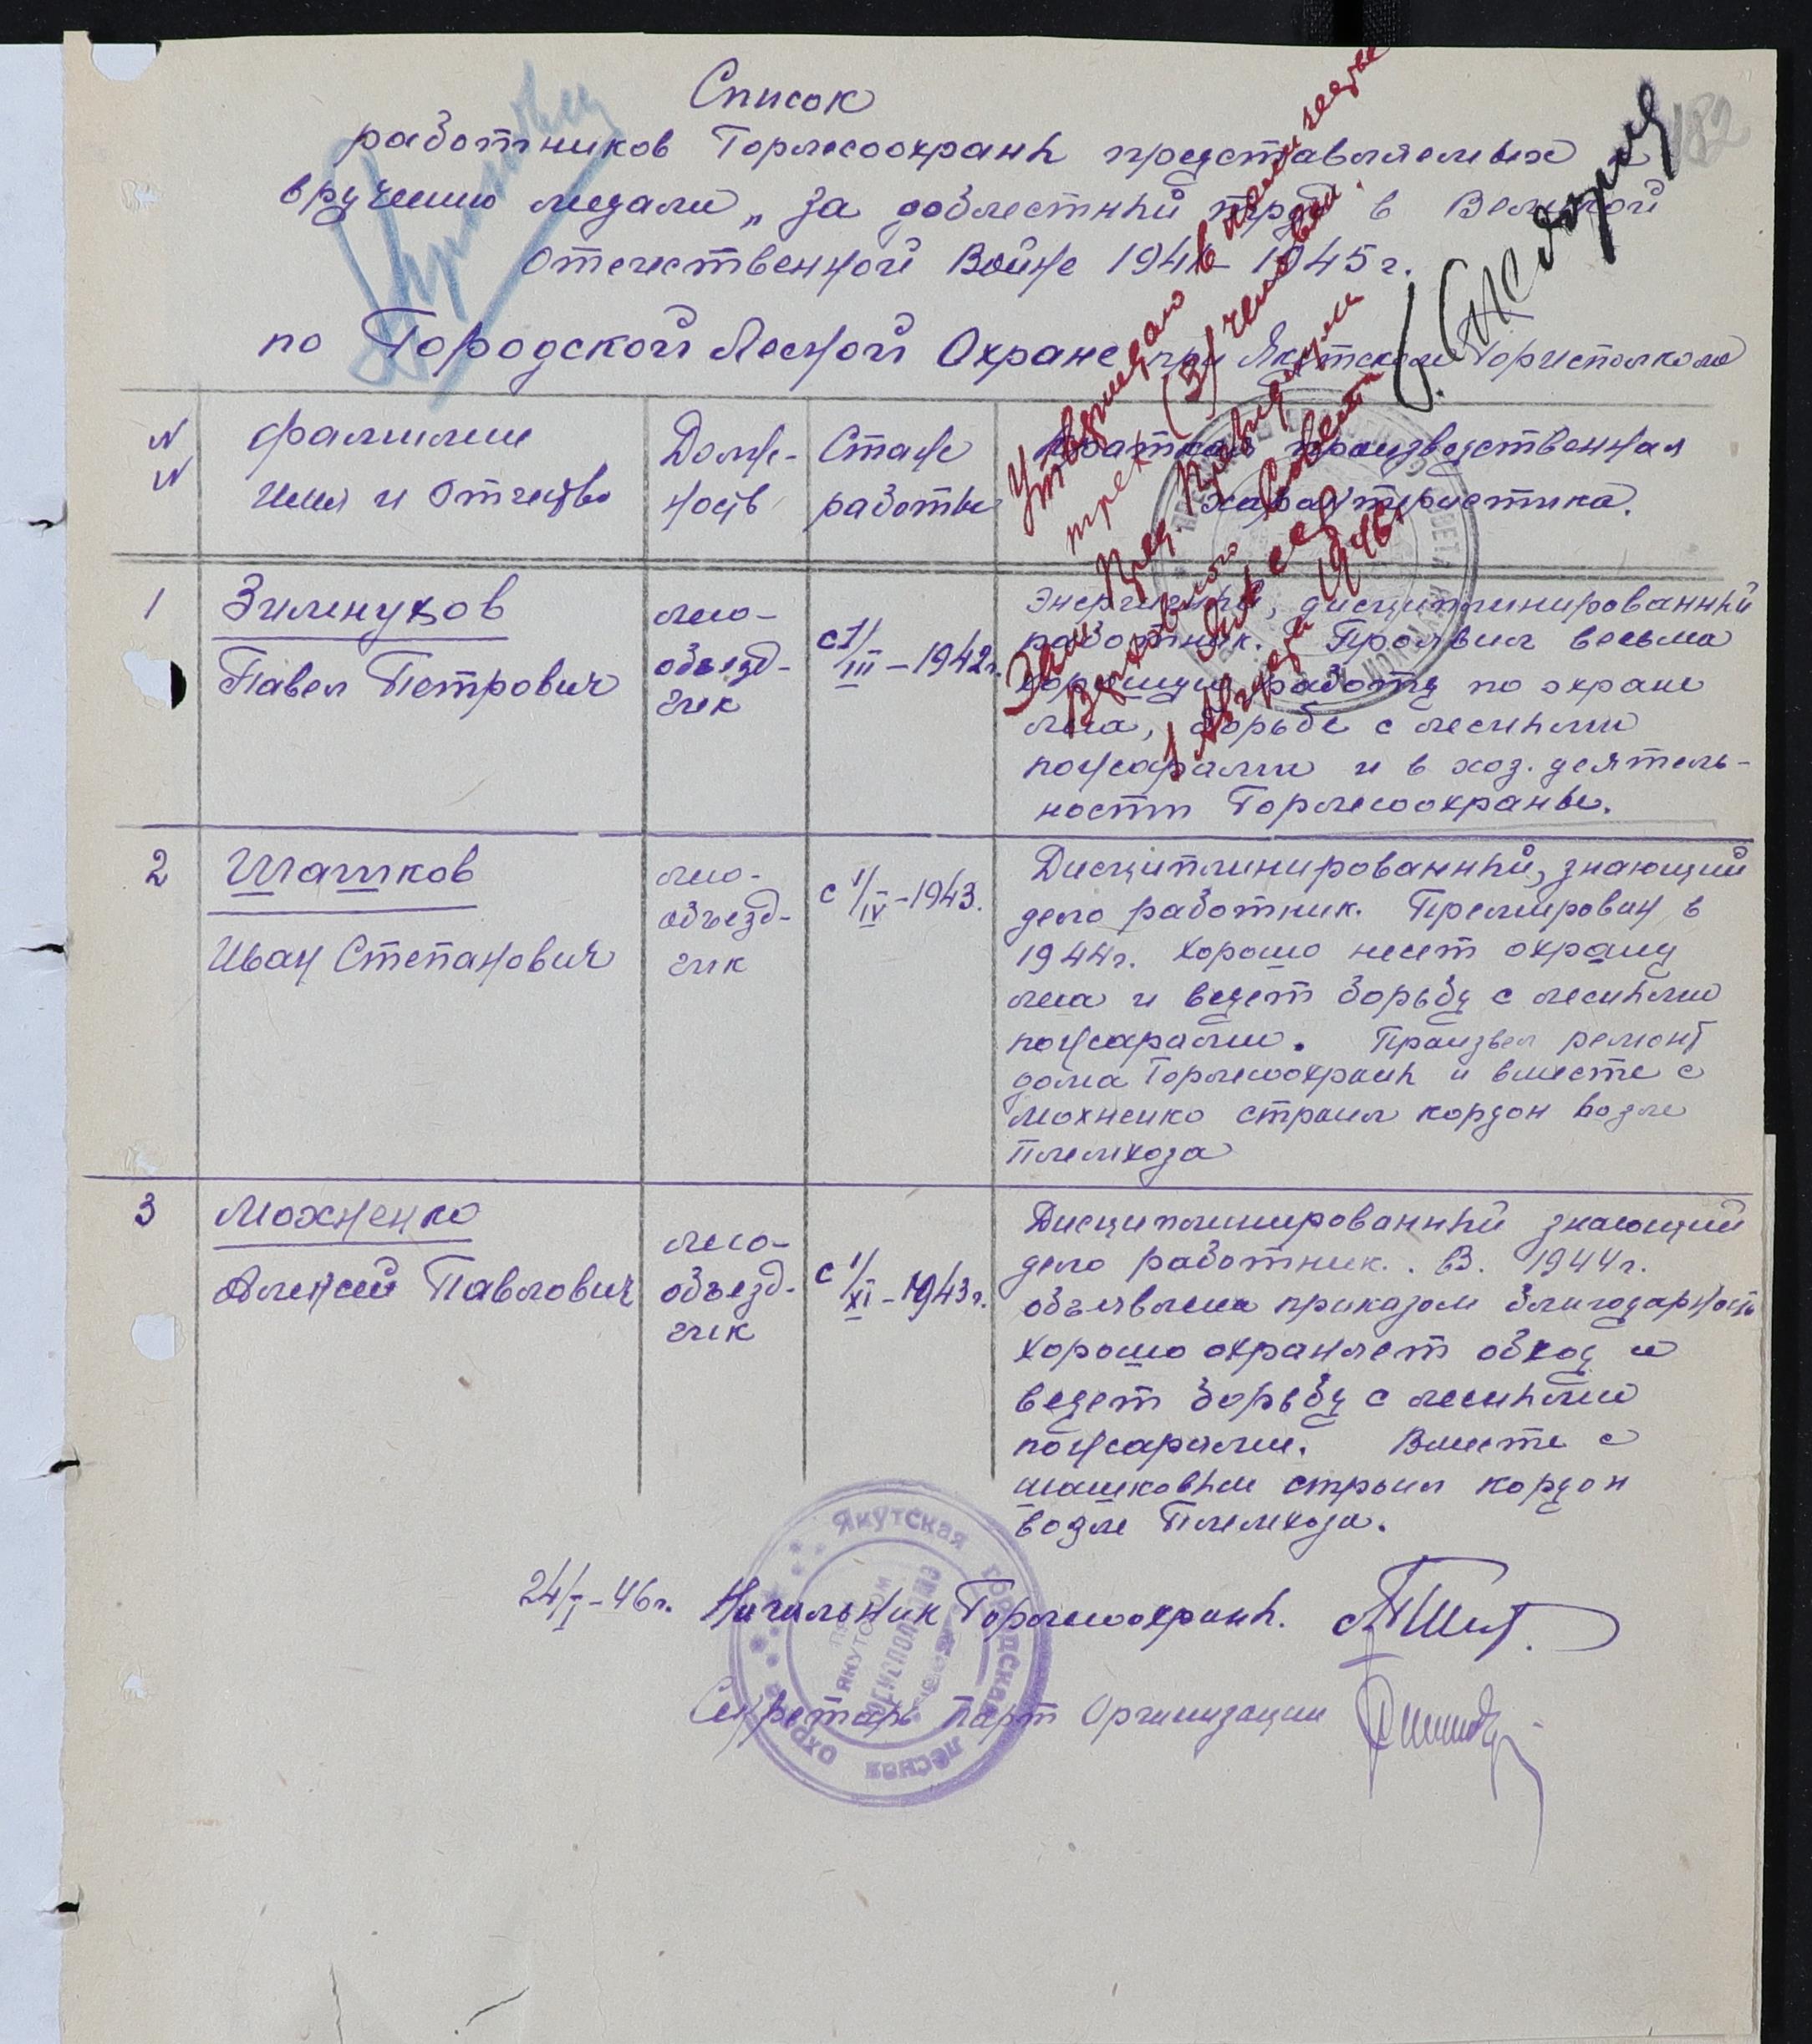 182
Список
работников Горлесоохраны представляемых к
вручению медали „за доблестный труд в Великой
Отечественной Войне 1941-1945г.
по Городской Лесной Охране при Якутском Горисполкоме
Утверждаю в количестве
трех (3) человек.
Зам. Пред. Президиума
Верховного Совета
ЯАССР
1 Августа 1946г.
N N
фамилии
имя и Отчество
Долж-
ность
Стаж
работы
Краткая производственная
характеристика.
1
Зименуков
Павел Петрович
лесо-
объезд-
чик
с 1/III-1942г.
Энергичный, дисциплинированный
работник. Проявил весьма
хорошую работу по охране
леса, борьбе с лесными
пожарами и в хоз. деятель-
ности Горлесоохраны.
2
Шашков
Иван Степанович
лесо-
объезд-
чик
с 1/IV-1943.
Дисциплинированный, знающий
дело работник. Премирован в
1944г. хорошо несет охрану
леса и ведет борьбу с лесными
пожарами. Произвел ремонт
дома Горлесоохраны и вместе с
Мохненко строил кордон возле
Племхоза
3
Мохненко
Алексей Павлович
лесо-
объезд-
чик
с 1/XI-1943г.
Дисциплинированный знающий
дело работник. В. 1944г.
объявлена приказом благодарность
хорошо охраняет обход и
ведет борьбу с лесными
пожарами. Вместе с
Шашковым строил кордон
возле Племхоза.
24/I-46г. Начальник Горлесоохраны.
Секретарь Парт Организации
Якутская городская лесная охрана
при Якутском
Горисполкоме